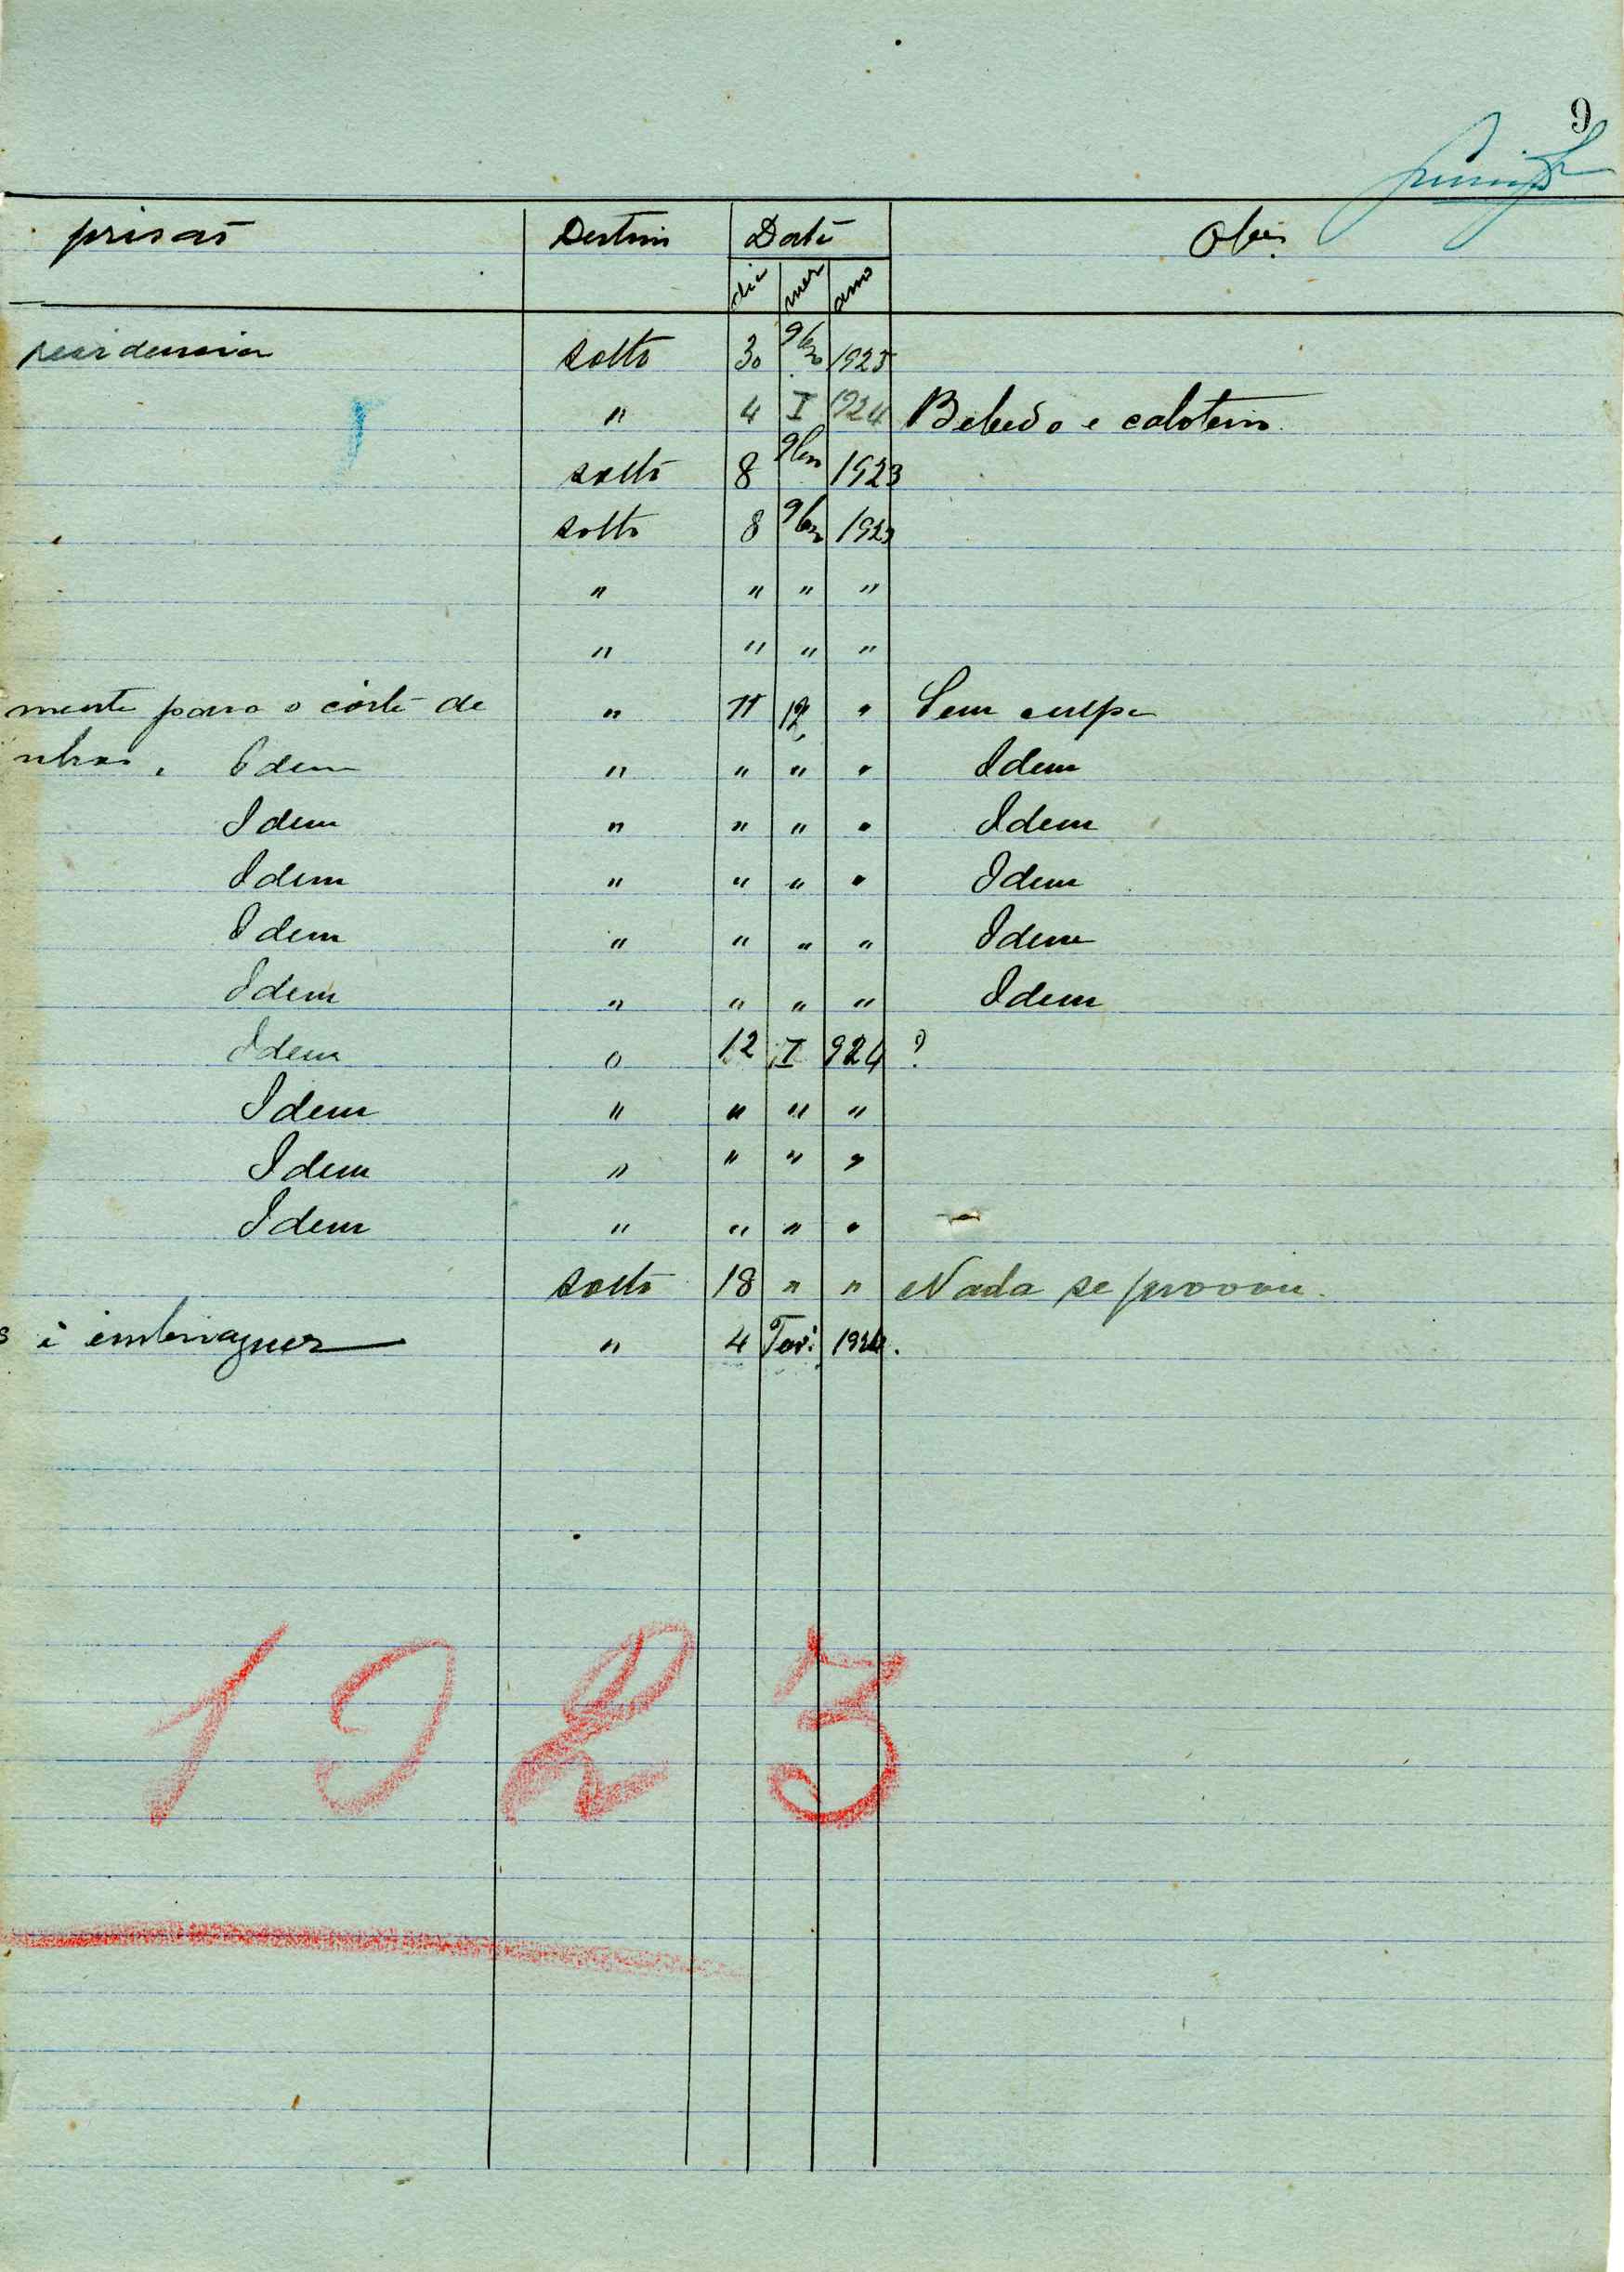 9
prisaõ Destino Data Obs.
dia mez ano
residencia solto 30 9bro 1923
" 4 I 1924 Bebedo e caloteiro.
solto 8 9bro 1923
solto 8 9bro 1923
" " " "
" " " "
mento para o córte de " 11 12 " Sem culpa
nhas. Idem " " " " Idem
Idem " " " " Idem
Idem " " " " Idem
Idem " " " " Idem
Idem " " " " Idem
Idem " 12 I 924 ?
Idem " " " "
Idem " " " "
Idem " " " "
solto 18 " " Nada se provou.
s i embriaguez " 4 Fevº 1924.
1923